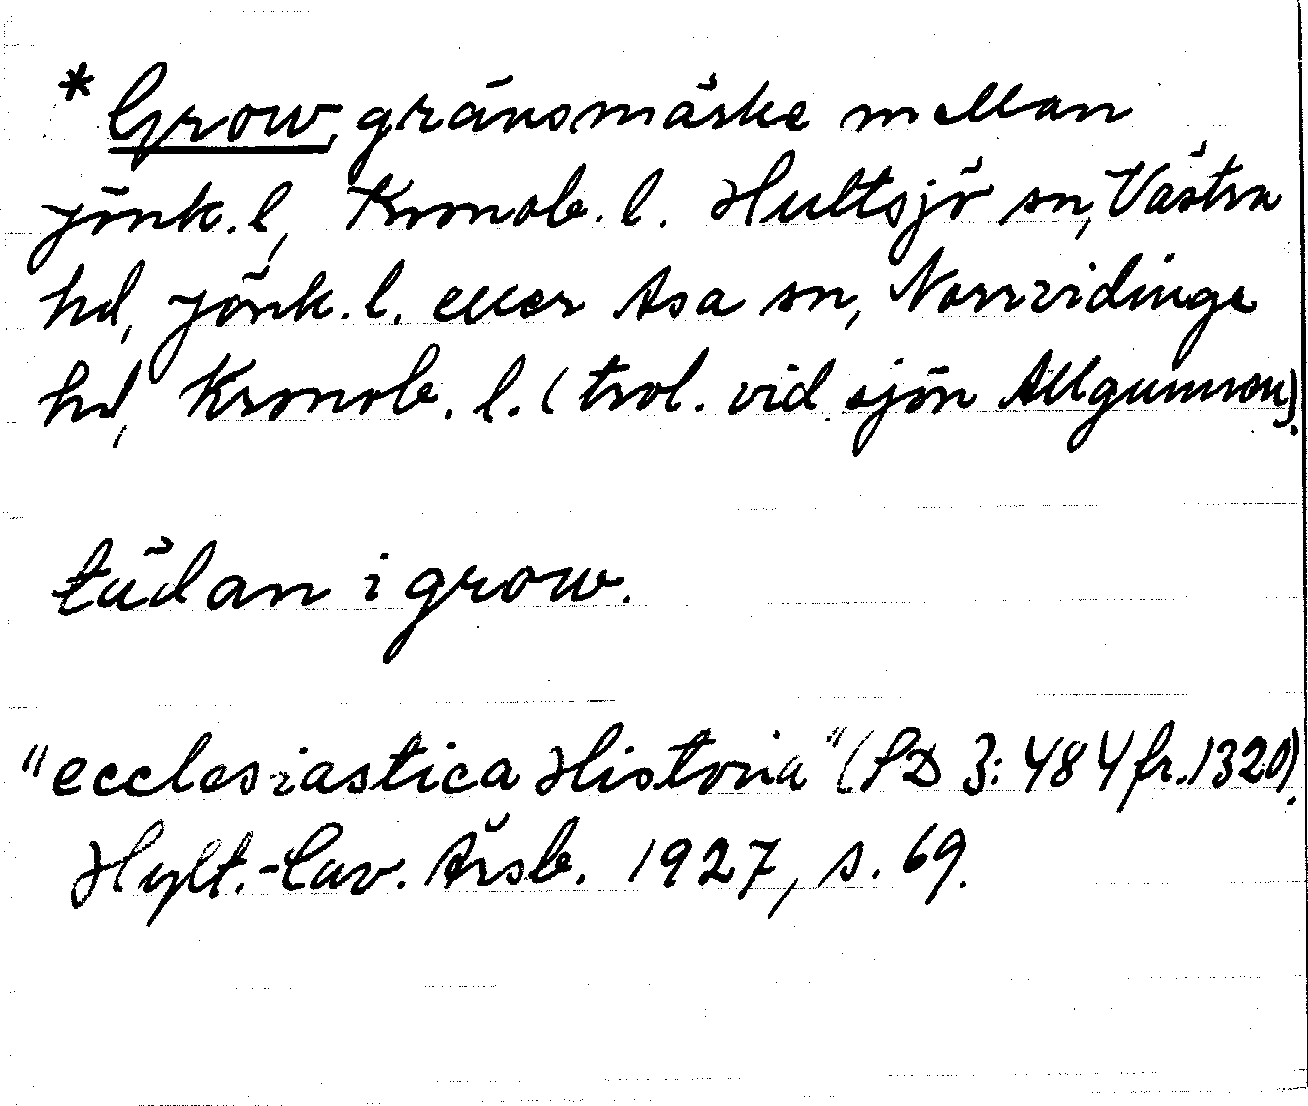 * Grow, gränsmärke mellan
Jönk. l, Kronob. l. Hultsjö sn, Västra
hd, Jönk. l. eller Asa sn, Norrvidinge
hd, Kronob. l. (trol. vid sjön Allgunnen).
tüdan i grow.
"ecclesiastica Historia" (SD 3: 484 fr. 1320).
Hylt.-Cav. Årsb. 1927, s. 69.